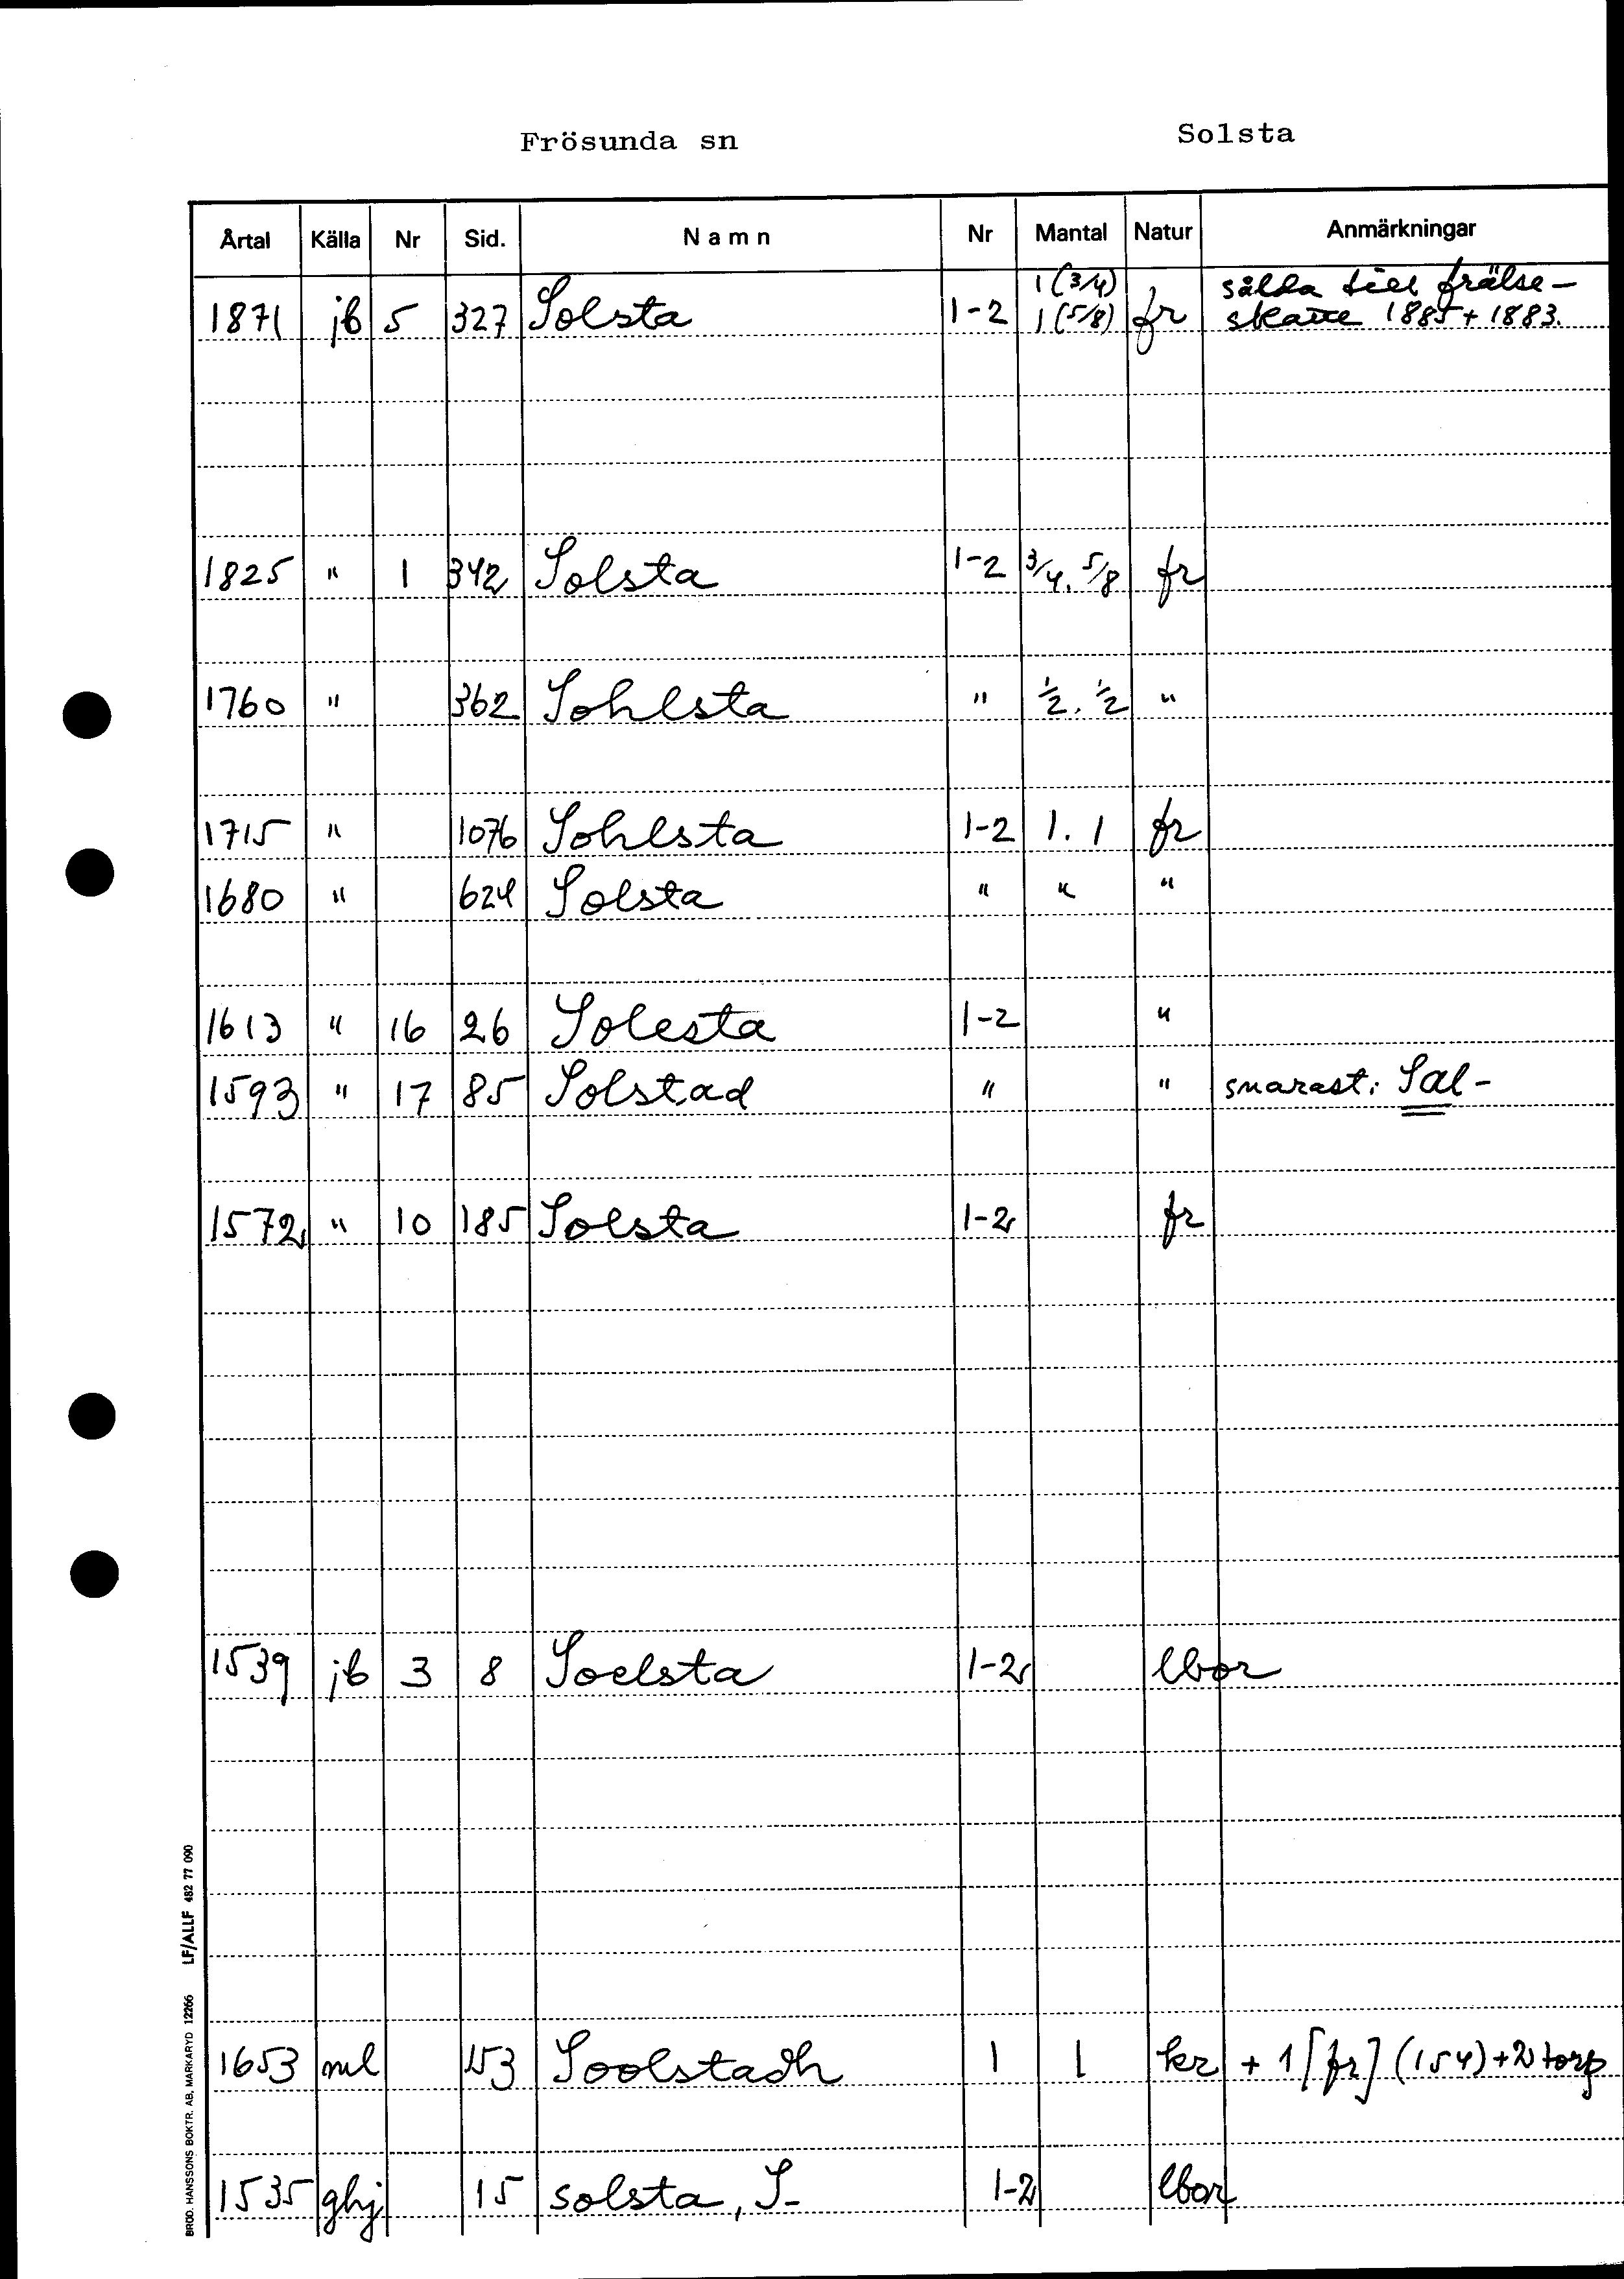 Frösunda sn Solsta
Årtal Källa Nr Sid. Namn Nr Mantal Natur Anmärkningar
1 (3/4) sålda till frälse-
1871 jb 5 327 Solsta 1-2 1 (5/8) fr skatte 1885 + 1883.
1825 " 1 342 Solsta 1-2 3/4. 5/8 fr
1760 " 362 Sohlsta " 1/2. 1/2 "
1715 " 1076 Sohlsta 1-2 1. 1 fr
1680 " 624 Solsta " " "
1613 " 16 26 Solesta 1-2 "
1593 " 17 85 Solstad " " snarast: Sal-
1572 " 10 185 Solsta 1-2 fr
1539 jb 3 8 Soelsta 1-2 lbor
1653 ml 153 Soolstadh 1 1 kr + 1 [fr] (154) + 2 torp
1535 ghj 15 solsta, S- 1-2 lbor
BRÖD. HANSSONS BOKTR. AB, MARKARYD 12266 LF/ALLF 482 77 090